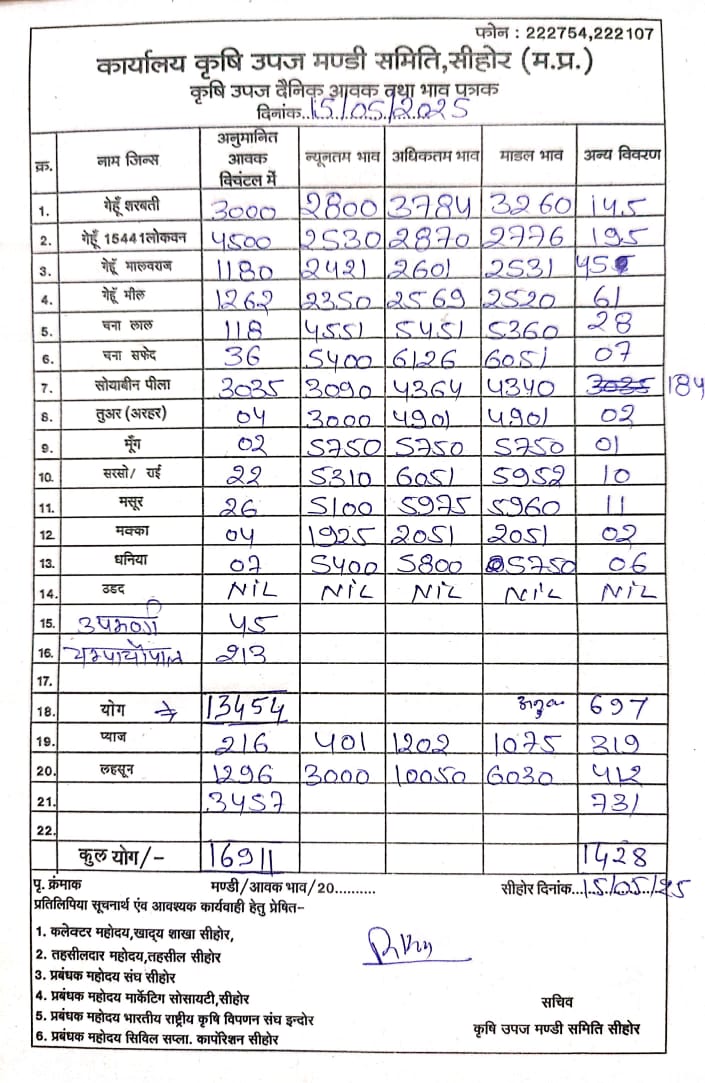 फोन : 222754,222107
कार्यालय कृषि उपज मण्डी समिति,सीहोर (म.प्र.)
कृषि उपज दैनिक आवक तथा भाव पत्रक
दिनांक..15/05/2025
क्र. नाम जिन्स अनुमानित आवक क्विंटल में न्यूनतम भाव अधिकतम भाव माडल भाव अन्य विवरण
1. गेहूँ शरबती 3000 2800 3784 3260 145
2. गेहूँ 15441लोकवन 4500 2530 2870 2776 195
3. गेहूँ मालवराज 1180 2421 2601 2531 45
4. गेहूँ मील 1262 2350 2569 2520 61
5. चना लाल 118 4551 5451 5360 28
6. चना सफेद 36 5400 6126 6051 07
7. सोयाबीन पीला 3035 3090 4364 4340 3035 184
8. तुअर (अरहर) 04 3000 4901 4901 02
9. मूँग 02 5750 5750 5750 01
10. सरसो/ राई 22 5310 6051 5952 10
11. मसूर 26 5100 5975 5960 11
12. मक्का 04 1925 2051 2051 02
13. धनिया 07 5400 5800 5750 06
14. उडद NIL NIL NIL NIL NIL
15. 45
16. 213
17.
18. योग → 13454 697
19. प्याज 216 401 1202 1075 319
20. लहसून 1296 3000 10050 6030 412
21. 3457 731
22.
कुल योग/- 16911 1428
पृ. क्रंमाक मण्डी/आवक भाव/20.......... सीहोर दिनांक...15/05/25
प्रतिलिपिया सूचनार्थ एंव आवश्यक कार्यवाही हेतु प्रेषित-
1. कलेक्टर महोदय,खाद्य शाखा सीहोर,
2. तहसीलदार महोदय,तहसील सीहोर
3. प्रबंधक महोदय संघ सीहोर
4. प्रबंधक महोदय मार्केटिग सोसायटी,सीहोर
5. प्रबंधक महोदय भारतीय राष्ट्रीय कृषि विपणन संघ इन्दोर
6. प्रबंधक महोदय सिविल सप्ला. कार्पोरेशन सीहोर
सचिव
कृषि उपज मण्डी समिति सीहोर